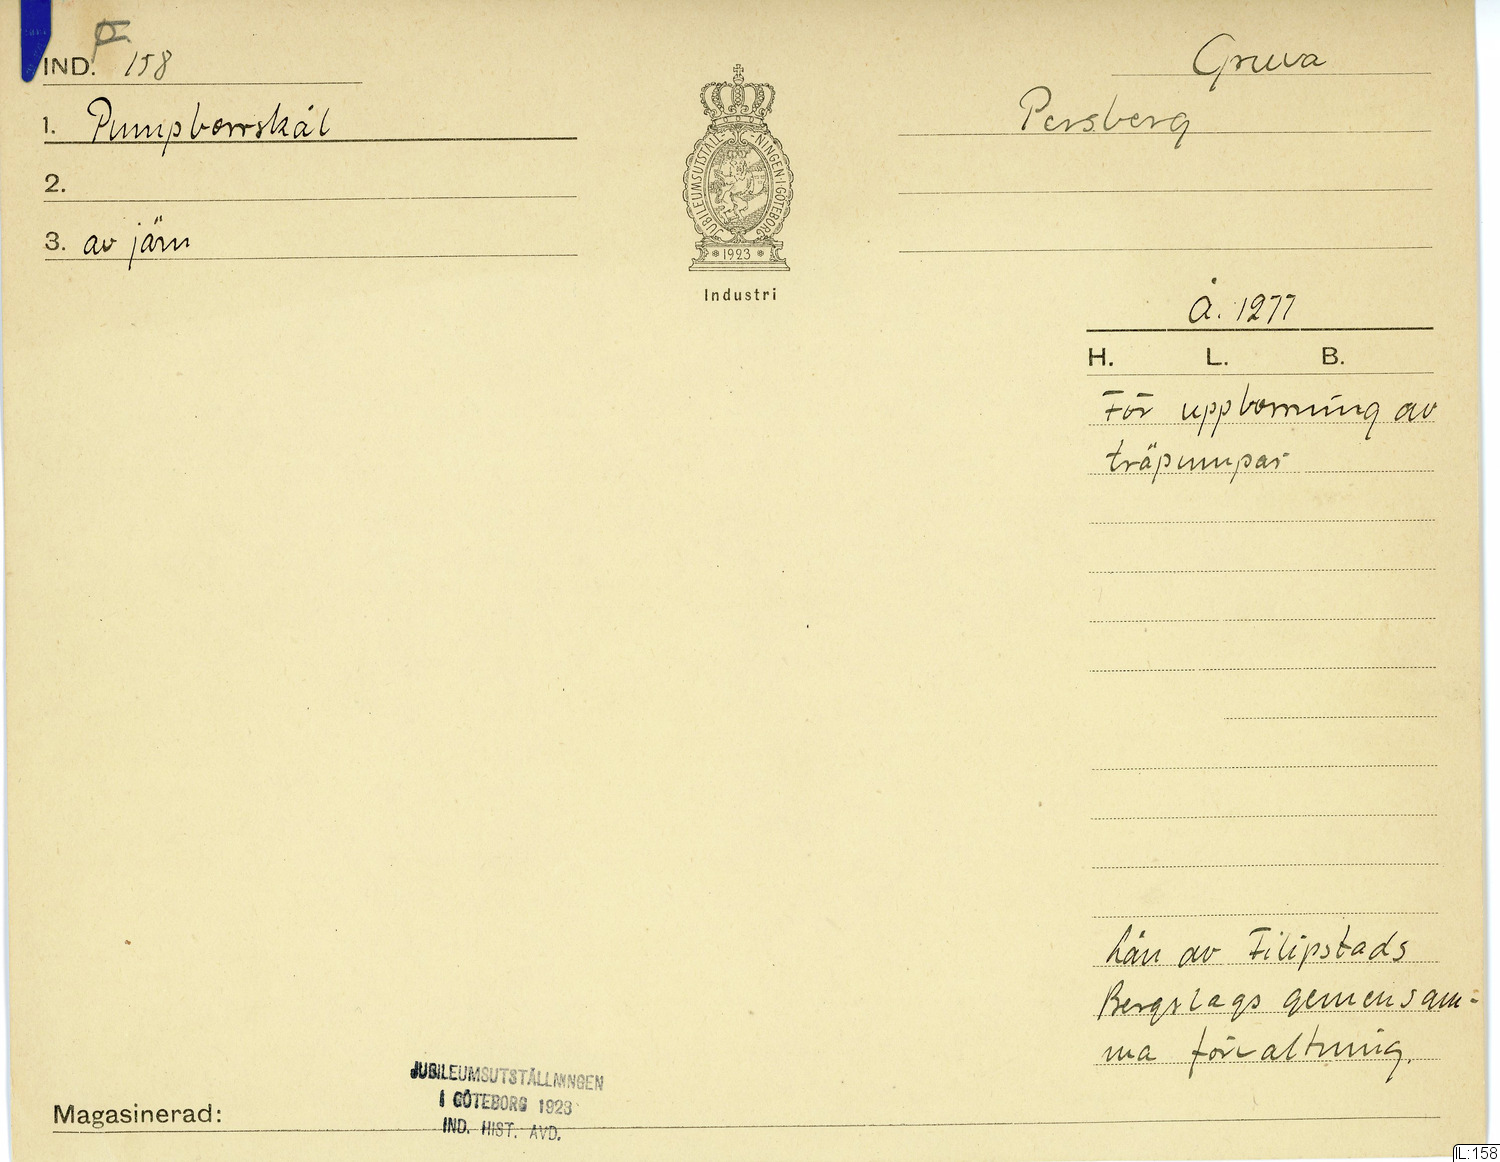 F
IND. 158
1. Pumpborrskål
2.
3. av järn
JUBILEUMSUTSTÄLLNINGEN I GÖTEBORG
1923
Industri
Gruva
Persberg
Å. 1277
H. L. B.
För uppborrning av
träpumpar
Lån av Filipstads
Bergslags gemensam-
ma förvaltning.
JUBILEUMSUTSTÄLLNINGEN
I GÖTEBORG 1923
IND. HIST. AVD.
Magasinerad:
IL:158